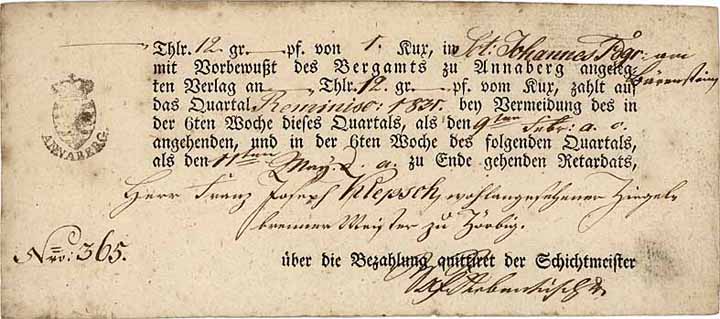 Thlr. 12. gr. pf. von 1. Kux, in St: Johannes Fdgr: am Bärenstein
mit Vorbewußt des Bergamts zu Annaberg angeleg-
ten Verlag an Thlr. 12. gr. pf. vom Kux, zahlt auf
das Quartal Reminisc: 1831. bey Vermeidung des in
der 6ten Woche dieses Quartals, als den 9ten Febr: a. c.
angehenden, und in der 6ten Woche des folgenden Quartals,
als den 11ten May. a. zu Ende gehenden Retardats,
Herr Franz Joseph Klepsch, wohlangesehener Ziegel-
brenner Meister zu Zörbig.
über die Bezahlung quittiret der Schichtmeister
Nro: 365.
ANNABERG.